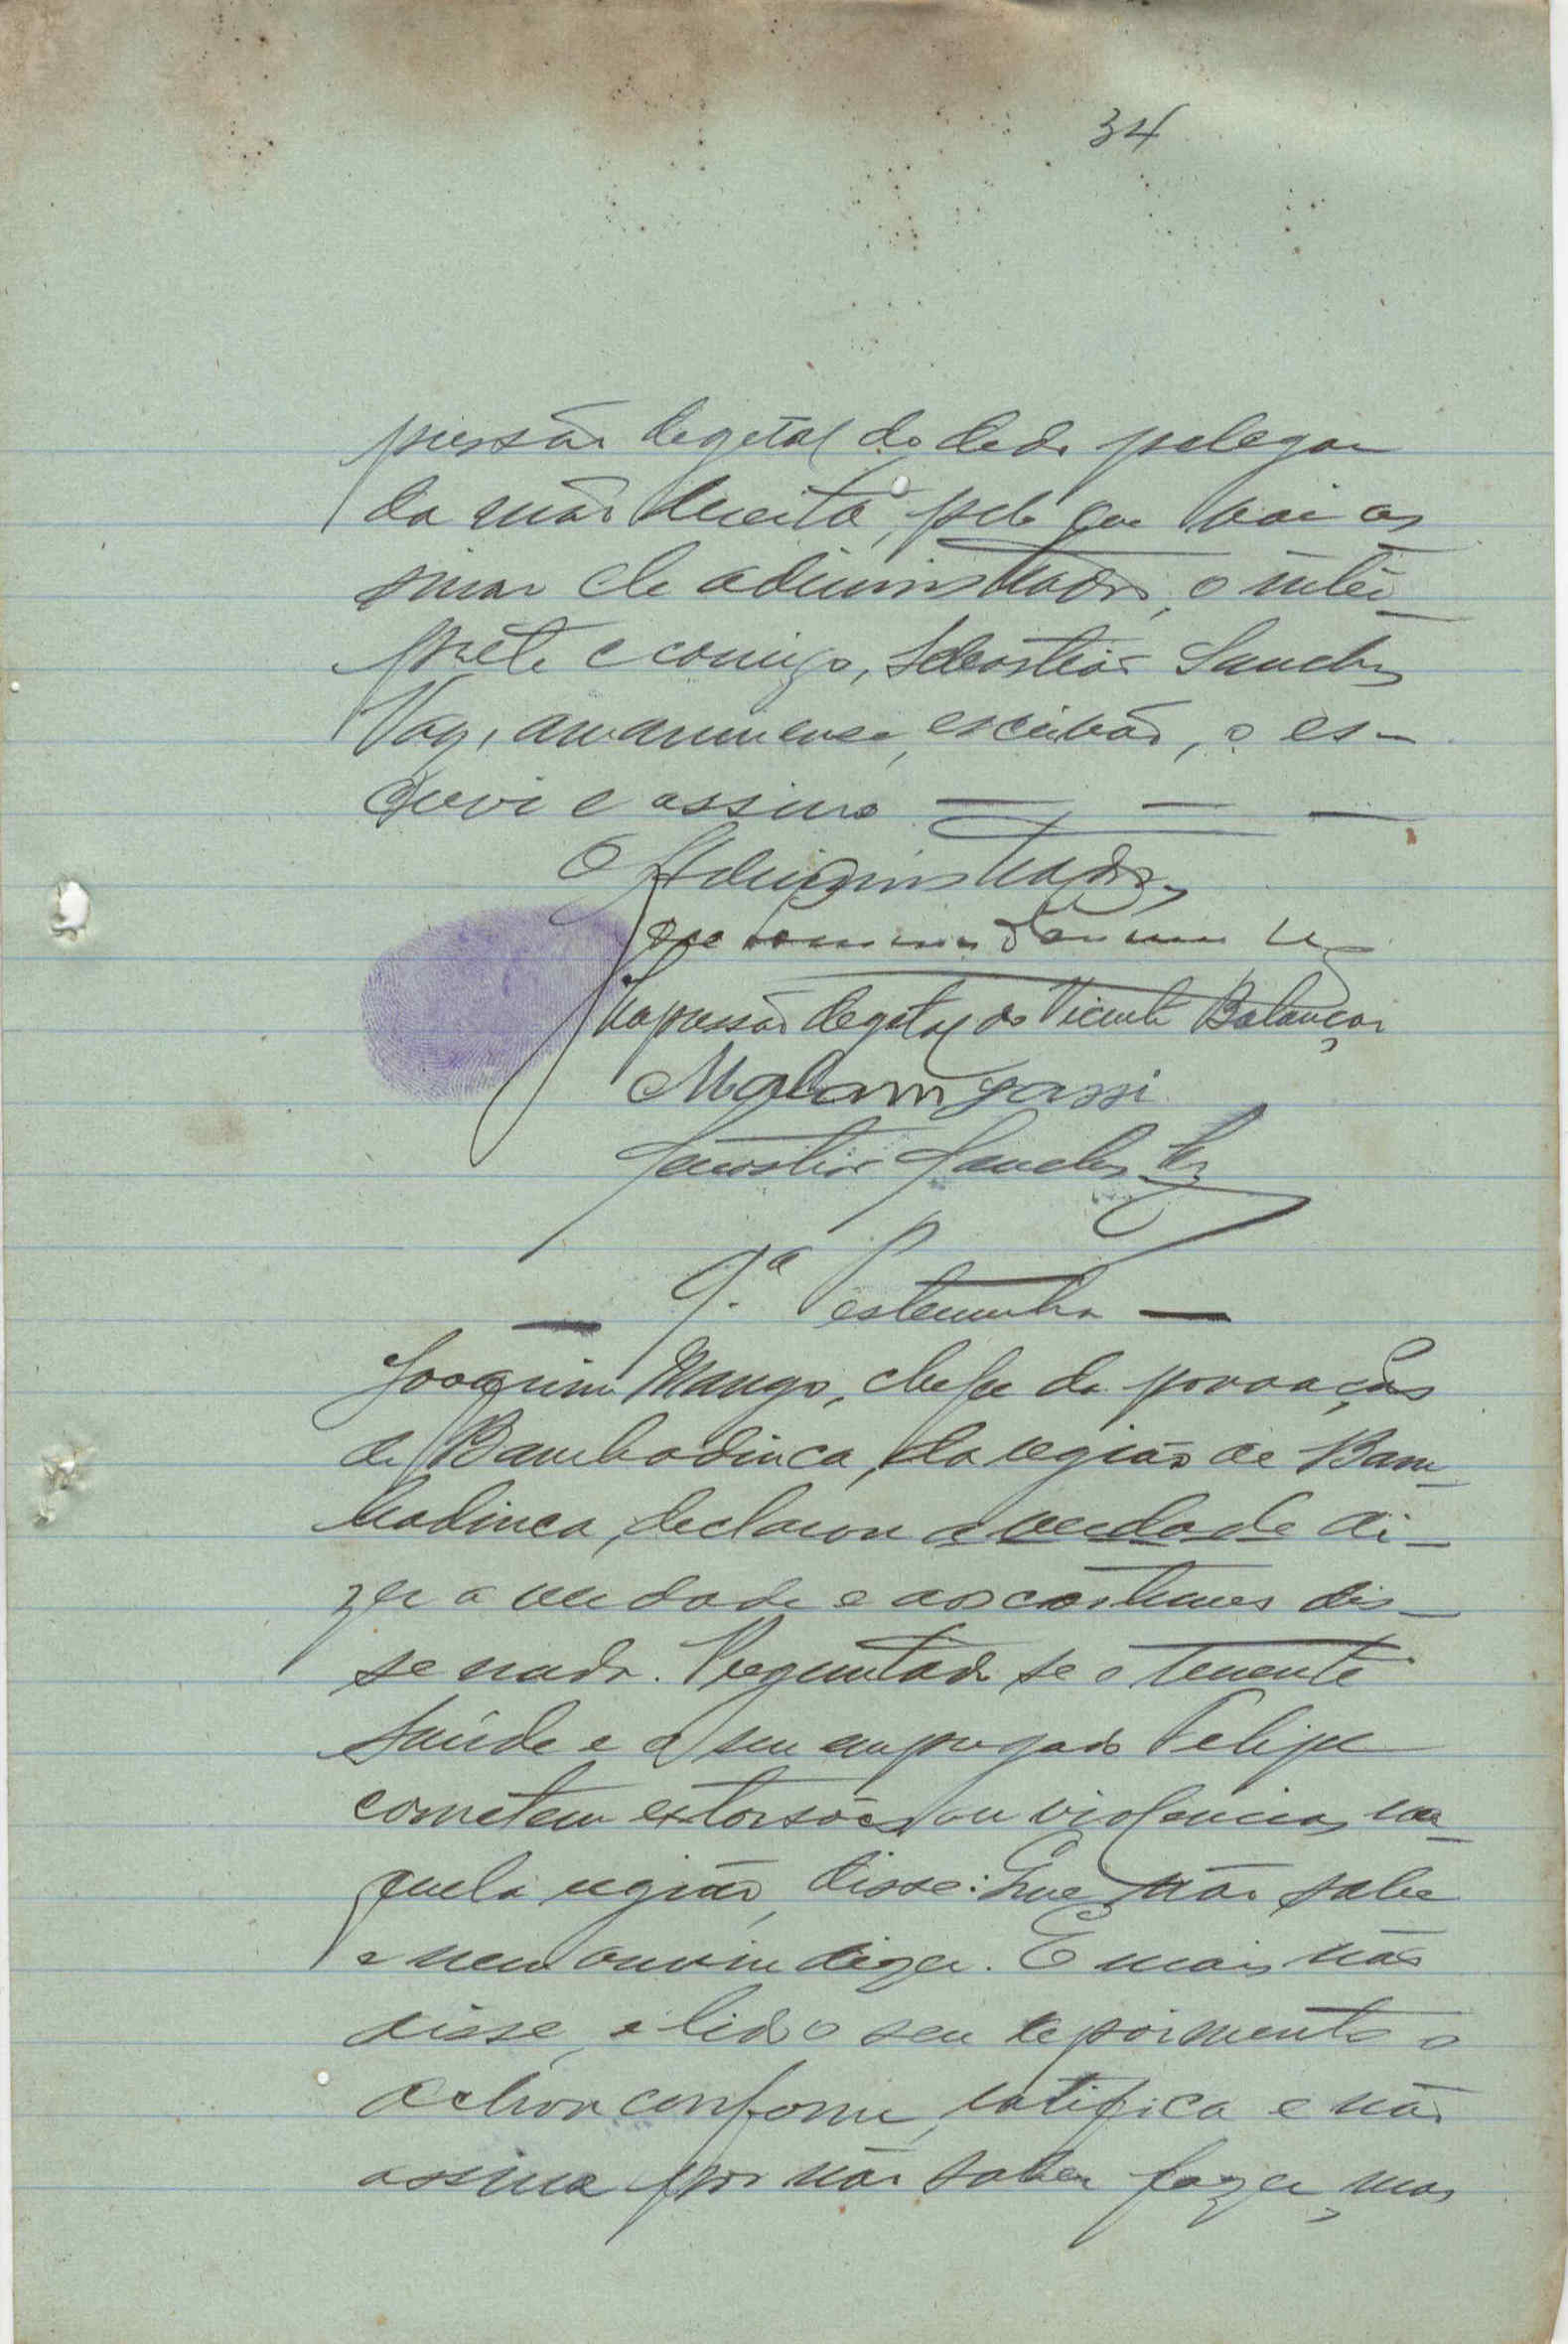 34
pressão degetal do dedo polegar
da mão direita, pelo que vai as
sinar ele administrador, o intér-
prete e comigo, Sebastião Sanches
Vaz, amanuense, escrivão, o es-
crevi e assino — — —
O Administrador,
Impressão degetal do Vicente Balançar
Malam
Sebastião Sanches Vaz
— 9.ª Testemunha —
Joaquim Mango, chefe da povoação
de Bambadinca, da região de Bam-
badinca, declarou a verdade di-
zer a verdade e aos costumes dis-
se nada. Preguntado se o tenente
Saúde e o seu empregado Felipe
cometem extorsões ou violencias na-
quela região, disse: Que não sabe
e nem ouviu dizer. E mais não
disse, e lido o seu depoimento o
achou conforme, ratifica e não
assina por não saber fazer, mas